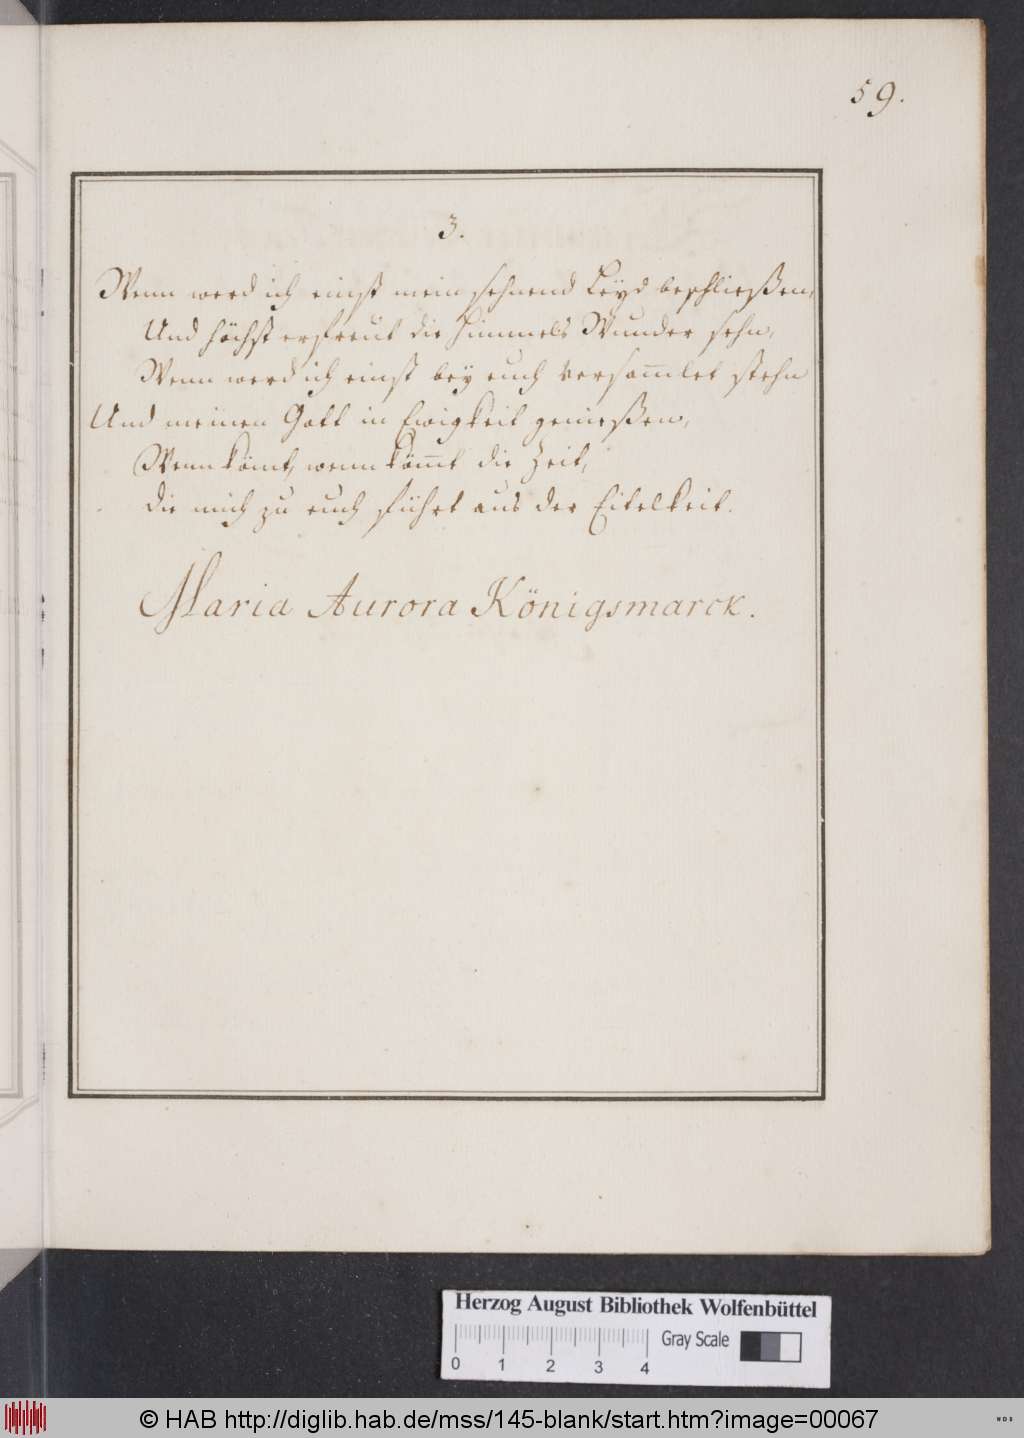 59.
3.
Wenn werd ich einst mein sehnend Leÿd beschließen,
Und höchst erfreut die Himmels Wunder sehn,
Wenn werd ich einst beÿ euch versam̅let stehn
Und meinen Gott in Ewigkeit genießen,
Wenn kömt, wenn köm̅t die Zeit,
die mich zu euch führt aus der Eitelkeit.
Maria Aurora Königsmarck.
Herzog August Bibliothek Wolfenbüttel
Gray Scale
0 1 2 3 4
© HAB http://diglib.hab.de/mss/145-blank/start.htm?image=00067